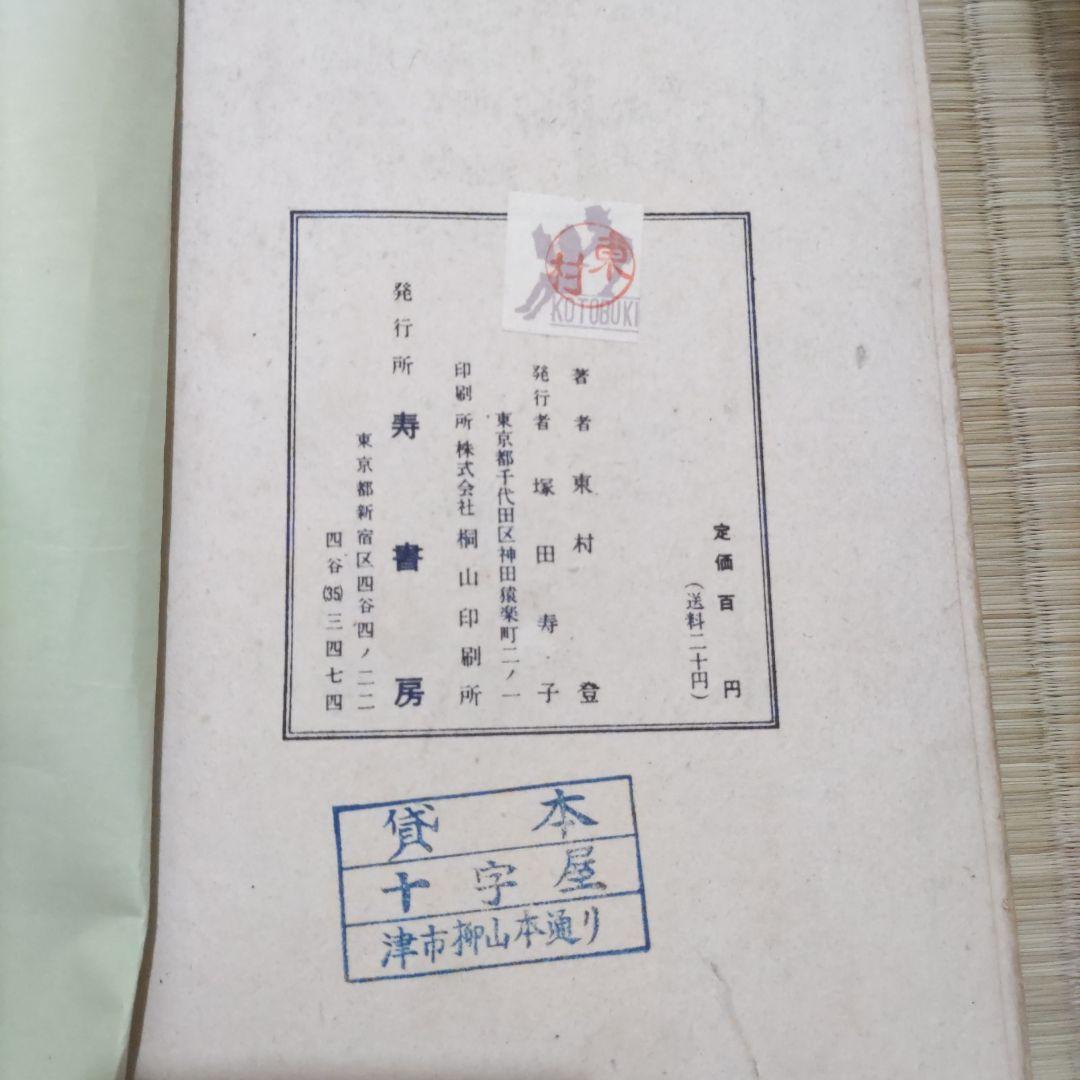 定価百円
(送料二十円)
東村
KOTOBUKI
著者 東村登
発行者 塚田寿子
東京都千代田区神田猿楽町二ノ一
印刷所 株式会社 桐山印刷所
発行所 寿書房
東京都新宿区四谷四ノ二二
四谷(35)三四七四
貸本
十字屋
津市柳山本通り